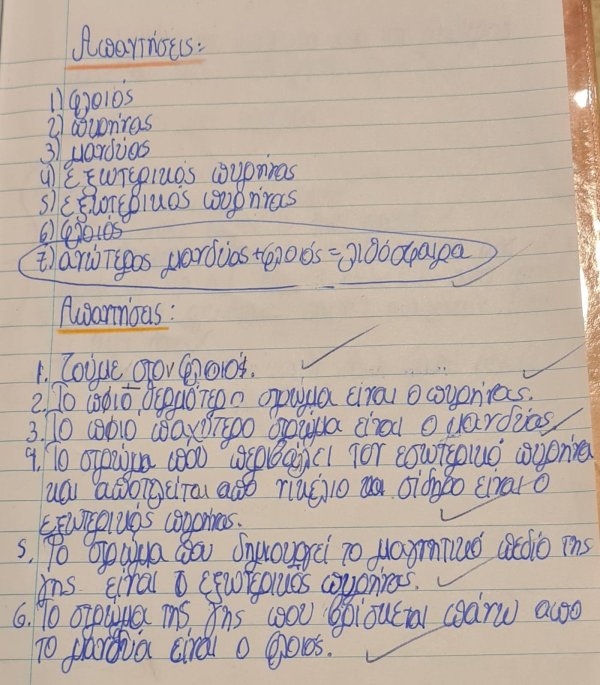 Απαντήσεις:
1) φλοιός
2) πυρήνας
3) μανδύας
4) εξωτερικός πυρήνας
5) εξωτερικός πυρήνας
6) φλοιός
7) ανώτερος μανδύας + φλοιός = λιθόσφαιρα
Απαντήσεις:
1. Ζούμε στον φλοιός.
2. Το πφιο θερμότερο στρώμα είναι ο πυρήνας.
3. Το πφιο παχύτερο στρώμα είναι ο μανδύας.
4. Το στρώμα που περιβάλλει τον εσωτερικό πυρήνα
και αποτελείται από νικέλιο και σίδηρο είναι ο
εξωτερικός πυρήνας.
5. Το στρώμα που δημιουργεί το μαγνητικό πεδίο της
γης είναι ο εξωτερικός πυρήνας.
6. Το στρώμα της γης που βρίσκεται πάνω απο
το μανδύα είναι ο φλοιός.